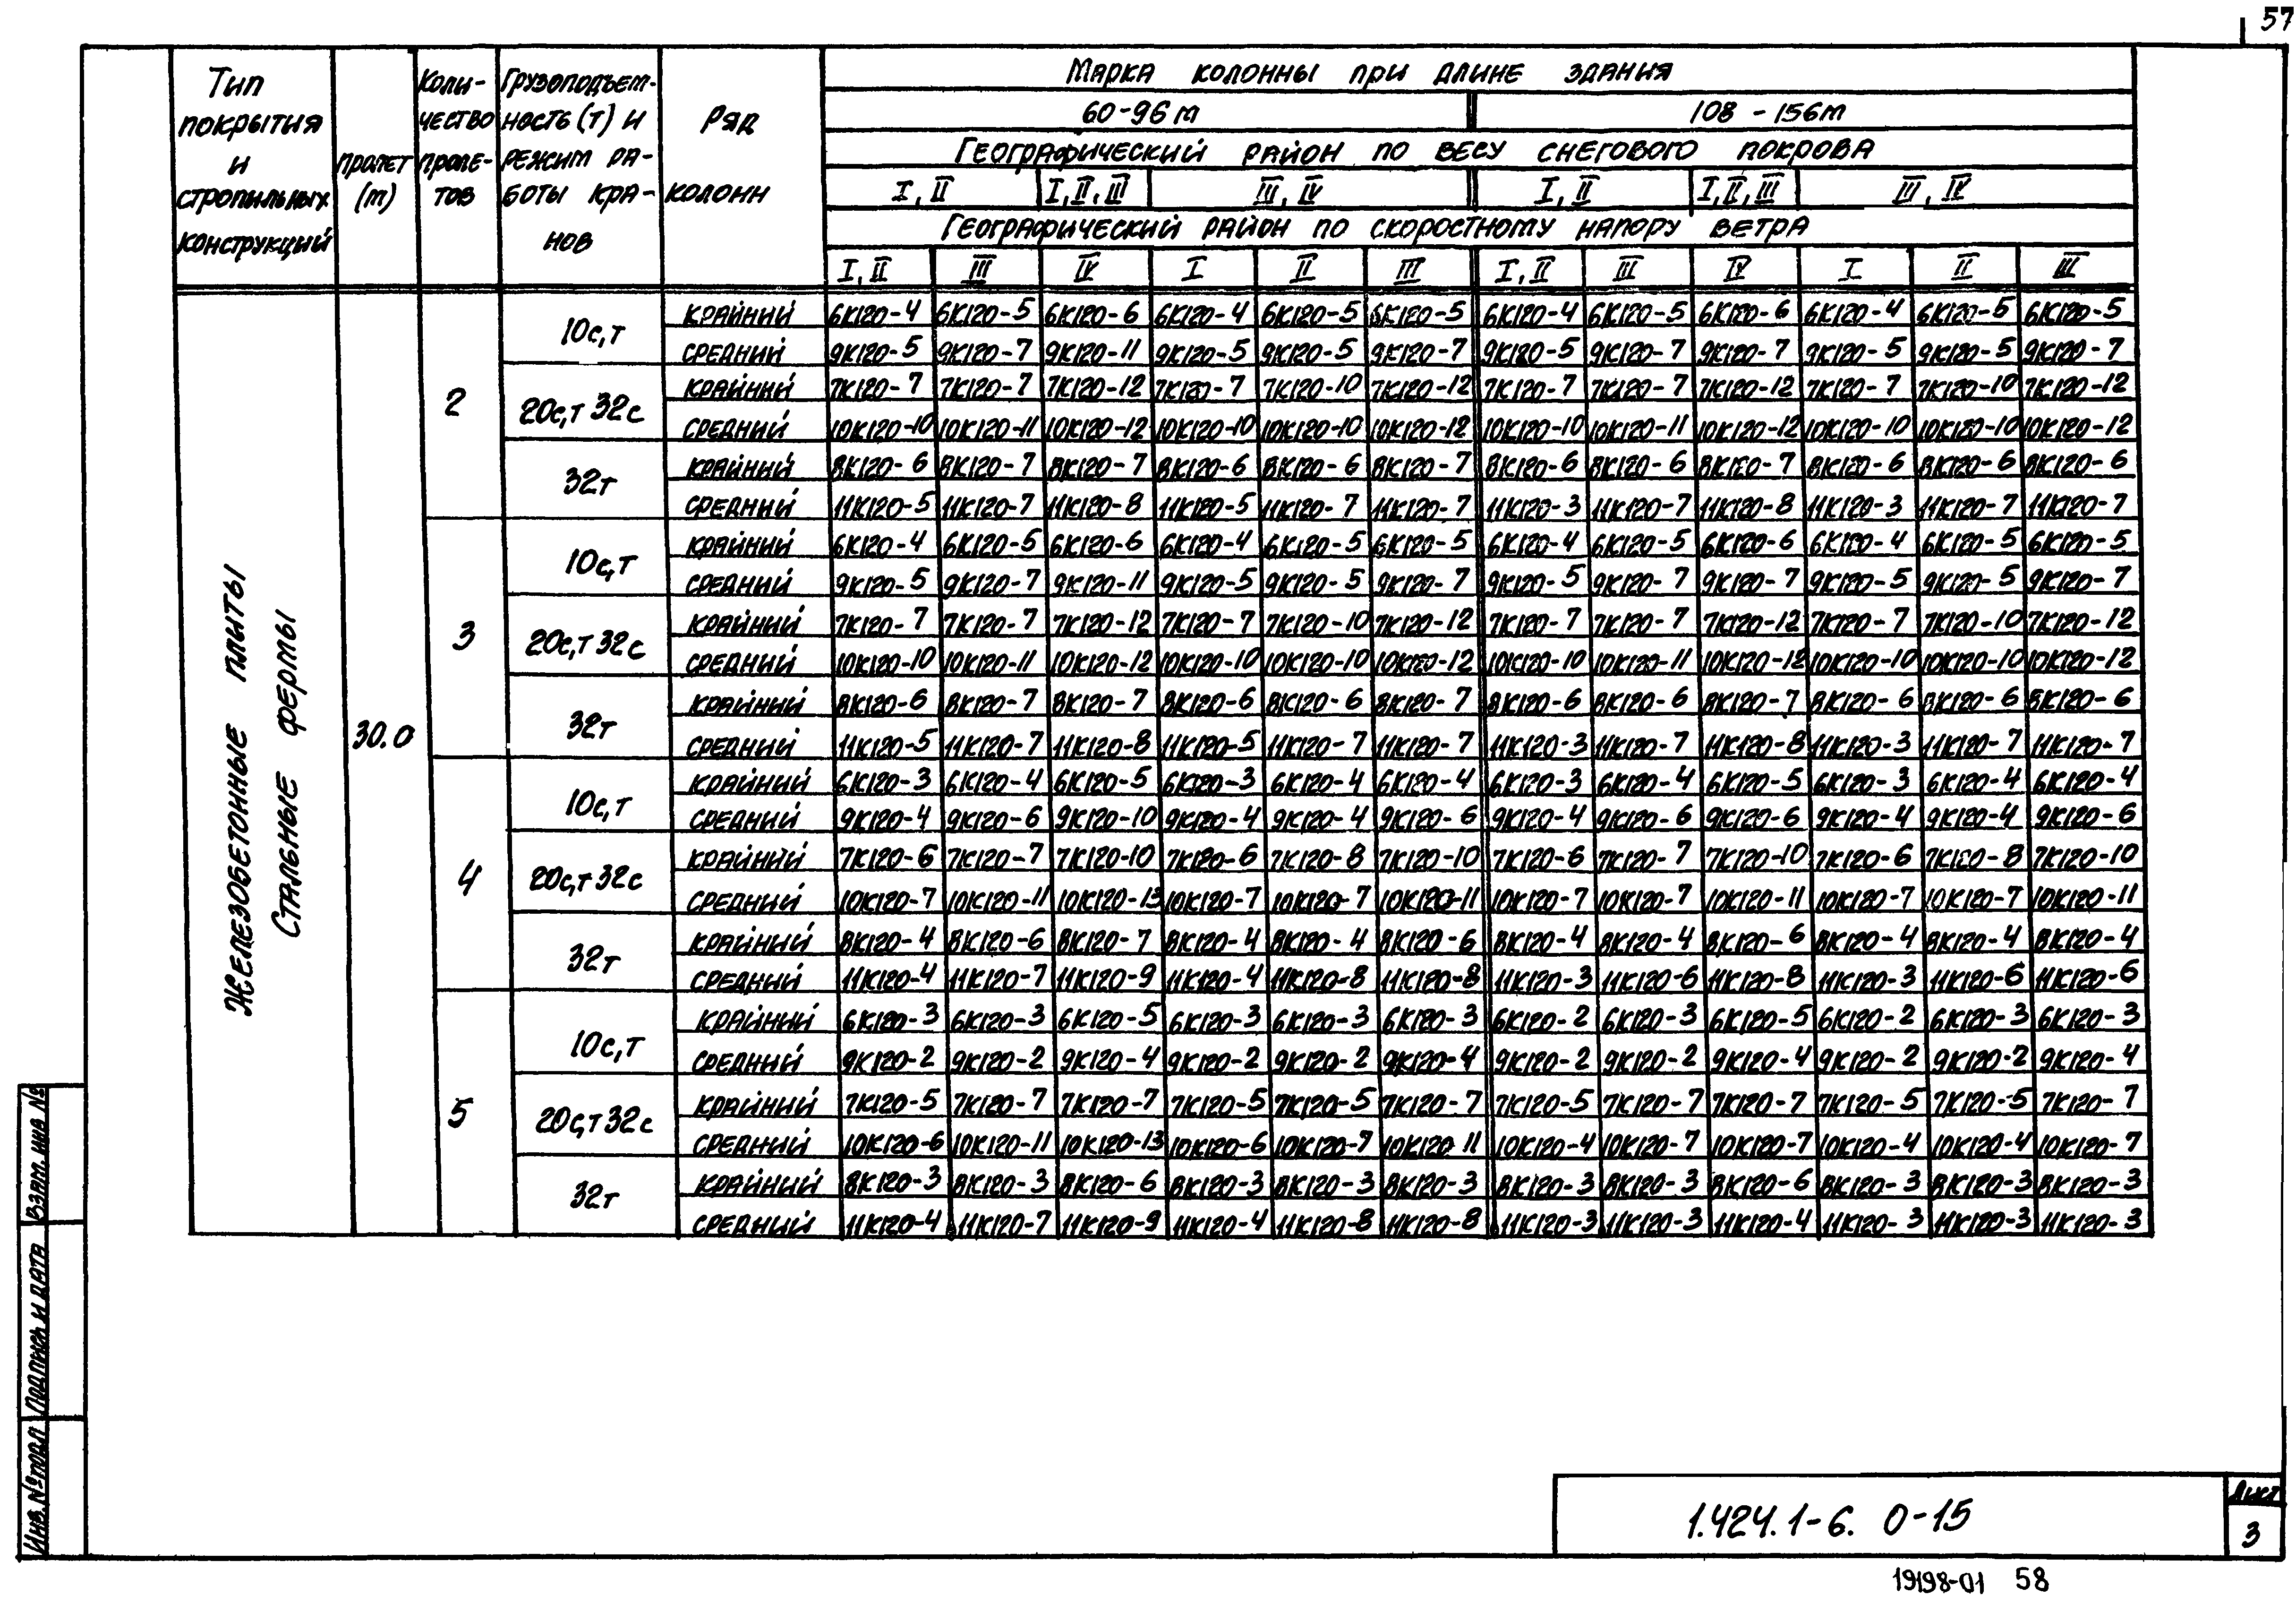 57
Тип покрытия и стропильных конструкций
Пролет (м)
Количество пролетов
Грузоподъемность (т) и режим работы кранов
Ряд колонн
Марка колонны при длине здания
60-96м 108-156м
Географический район по весу снегового покрова
I, II I, II, III III, IV I, II I, II, III III, IV
Географический район по скоростному напору ветра
I, II III IV I II III I, II III IV I II III
Железобетонные плиты
Стальные фермы
30.0
2
10с,т
крайний 6К120-4 6К120-5 6К120-6 6К120-4 6К120-5 6К120-5 6К120-4 6К120-5 6К120-6 6К120-4 6К120-5 6К120-5
средний 9К120-5 9К120-7 9К120-11 9К120-5 9К120-5 9К120-7 9К120-5 9К120-7 9К120-7 9К120-5 9К120-5 9К120-7
20с,т 32с
крайний 7К120-7 7К120-7 7К120-12 7К120-7 7К120-10 7К120-12 7К120-7 7К120-7 7К120-12 7К120-7 7К120-10 7К120-12
средний 10К120-10 10К120-11 10К120-12 10К120-10 10К120-10 10К120-12 10К120-10 10К120-11 10К120-12 10К120-10 10К120-10 10К120-12
32т
крайний 8К120-6 8К120-7 8К120-7 8К120-6 8К120-6 8К120-7 8К120-6 8К120-6 8К120-7 8К120-6 8К120-6 8К120-6
средний 11К120-5 11К120-7 11К120-8 11К120-5 11К120-7 11К120-7 11К120-3 11К120-7 11К120-8 11К120-3 11К120-7 11К120-7
3
10с,т
крайний 6К120-4 6К120-5 6К120-6 6К120-4 6К120-5 6К120-5 6К120-4 6К120-5 6К120-6 6К120-4 6К120-5 6К120-5
средний 9К120-5 9К120-7 9К120-11 9К120-5 9К120-5 9К120-7 9К120-5 9К120-7 9К120-7 9К120-5 9К120-5 9К120-7
20с,т 32с
крайний 7К120-7 7К120-7 7К120-12 7К120-7 7К120-10 7К120-12 7К120-7 7К120-7 7К120-12 7К120-7 7К120-10 7К120-12
средний 10К120-10 10К120-11 10К120-12 10К120-10 10К120-10 10К120-12 10К120-10 10К120-11 10К120-12 10К120-10 10К120-10 10К120-12
32т
крайний 8К120-6 8К120-7 8К120-7 8К120-6 8К120-6 8К120-7 8К120-6 8К120-6 8К120-7 8К120-6 8К120-6 8К120-6
средний 11К120-5 11К120-7 11К120-8 11К120-5 11К120-7 11К120-7 11К120-3 11К120-7 11К120-8 11К120-3 11К120-7 11К120-7
4
10с,т
крайний 6К120-3 6К120-4 6К120-5 6К120-3 6К120-4 6К120-4 6К120-3 6К120-4 6К120-5 6К120-3 6К120-4 6К120-4
средний 9К120-4 9К120-6 9К120-10 9К120-4 9К120-4 9К120-6 9К120-4 9К120-6 9К120-6 9К120-4 9К120-4 9К120-6
20с,т 32с
крайний 7К120-6 7К120-7 7К120-10 7К120-6 7К120-8 7К120-10 7К120-6 7К120-7 7К120-10 7К120-6 7К120-8 7К120-10
средний 10К120-7 10К120-11 10К120-13 10К120-7 10К120-7 10К120-11 10К120-7 10К120-7 10К120-11 10К120-7 10К120-7 10К120-11
32т
крайний 8К120-4 8К120-6 8К120-7 8К120-4 8К120-4 8К120-6 8К120-4 8К120-4 8К120-6 8К120-4 8К120-4 8К120-4
средний 11К120-4 11К120-7 11К120-9 11К120-4 11К120-8 11К120-8 11К120-3 11К120-6 11К120-8 11К120-3 11К120-6 11К120-6
5
10с,т
крайний 6К120-3 6К120-3 6К120-5 6К120-3 6К120-3 6К120-3 6К120-2 6К120-3 6К120-5 6К120-2 6К120-3 6К120-3
средний 9К120-2 9К120-2 9К120-4 9К120-2 9К120-2 9К120-4 9К120-2 9К120-2 9К120-4 9К120-2 9К120-2 9К120-4
20с,т 32с
крайний 7К120-5 7К120-7 7К120-7 7К120-5 7К120-5 7К120-7 7К120-5 7К120-7 7К120-7 7К120-5 7К120-5 7К120-7
средний 10К120-6 10К120-11 10К120-13 10К120-6 10К120-7 10К120 11 10К120-4 10К120-7 10К120-7 10К120-4 10К120-4 10К120-7
32т
крайний 8К120-3 8К120-3 8К120-6 8К120-3 8К120-3 8К120-3 8К120-3 8К120-3 8К120-6 8К120-3 8К120-3 8К120-3
средний 11К120-4 11К120-7 11К120-9 11К120-4 11К120-8 11К120-8 11К120-3 11К120-3 11К120-4 11К120-3 11К120-3 11К120-3
Взам. инв. №
Подпись и дата
Инв. № подл
1.424.1-6. 0-15
Лист
3
19198-01 58